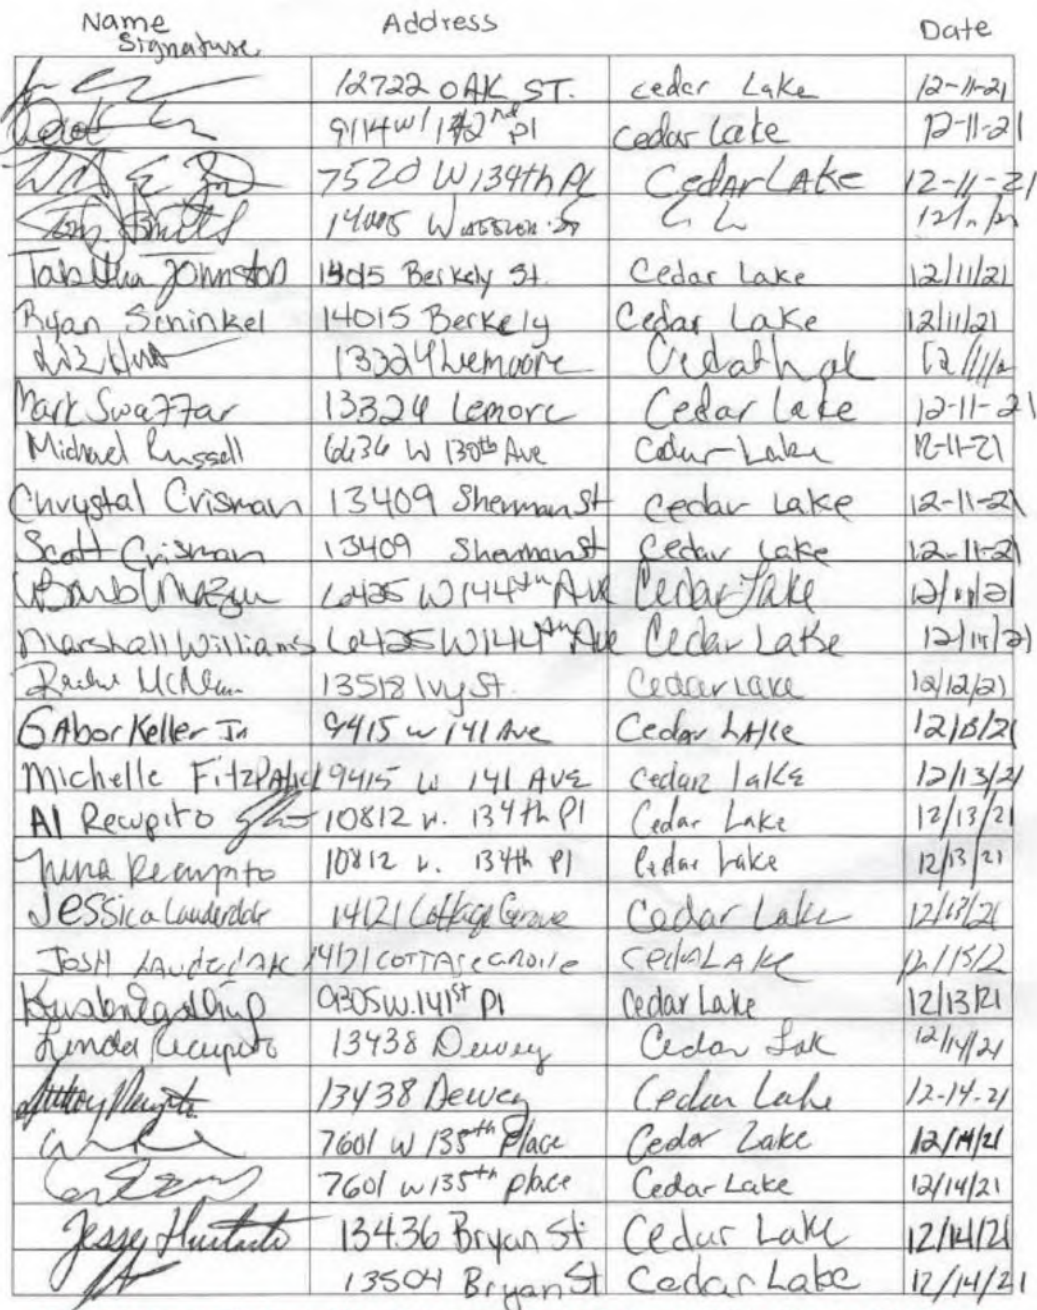 Name Address Date
Signature
12722 OAK ST. cedar Lake 12-11-21
9114 W 142nd Pl Cedar Lake 12-11-21
7520 W 134th PL CedAr LAke 12-11-21
Smith C L
Tabitha Johnston 14015 Berkely St. Cedar Lake 12/11/21
Ryan Schinkel 14015 Berkely Cedar Lake 12/11/21
13324 Lemoore
Mark Swaffar 13324 Lemore Cedar Lake 12-11-21
Michael Russell 6636 W 130th Ave Cedar Lake 12-11-21
Chrystal Crisman 13409 Sherman St Cedar Lake 12-11-21
Scott Crisman 13409 Sherman St Cedar Lake 12-11-21
Barb Mazur 6425 W 144th Ave Cedar Lake 12/11/21
Marshall Williams 6425 W 144th Ave Cedar Lake 12/11/21
13518 Ivy St. Cedar Lake 12/12/21
GAbor Keller Jr 9415 w 141 Ave Cedar LAke 12/13/21
Michelle FitzPAtrick 9415 W 141 AVE Cedar lake 12/13/21
Al Recupito 10812 w. 134th Pl Cedar Lake 12/13/21
Nina Recupito 10812 w. 134th Pl Cedar Lake 12/13/21
Jessica Lauderdale 14121 Cottage Grove Cedar Lake 12/13/21
JOSH LAuderdAle 14121 COTTAGE GROVE CedAr LAke
9305 W. 141st Pl Cedar Lake 12/13/21
Linda Recupito 13438 Dewey Cedar Lak 12/14/21
13438 Dewey Cedar Lake 12-14-21
7601 W 135th Place Cedar Lake 12/14/21
7601 w 135th place Cedar Lake 12/14/21
Jessey Hurtado 13436 Bryan St Cedar Lake 12/14/21
13504 Bryan St Cedar Lake 12/14/21